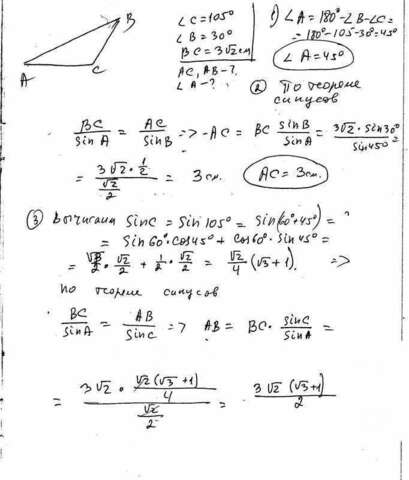 B
A
C
∠C = 105°
∠B = 30°
BC = 3√2 см
AC, AB - ?
∠A - ?
1) ∠A = 180° - ∠B - ∠C =
= 180° - 105 - 30 = 45°
∠A = 45°
② По теореме
синусов
BC/sin A = AC/sin B => AC = BC sin B/sin A = 3√2 · sin 30°/sin 45° =
= (3√2 · 1/2)/(√2/2) = 3 см. AC = 3 см.
③ Вычислим sin C = sin 105° = sin(60° + 45°) =
= sin 60° · cos 45° + cos 60° · sin 45° =
= √3/2 · √2/2 + 1/2 · √2/2 = √2/4 (√3 + 1). =>
по теореме синусов
BC/sin A = AB/sin C => AB = BC · sin C/sin A =
= (3√2 · √2(√3 + 1)/4)/(√2/2) = 3√2 (√3 + 1)/2